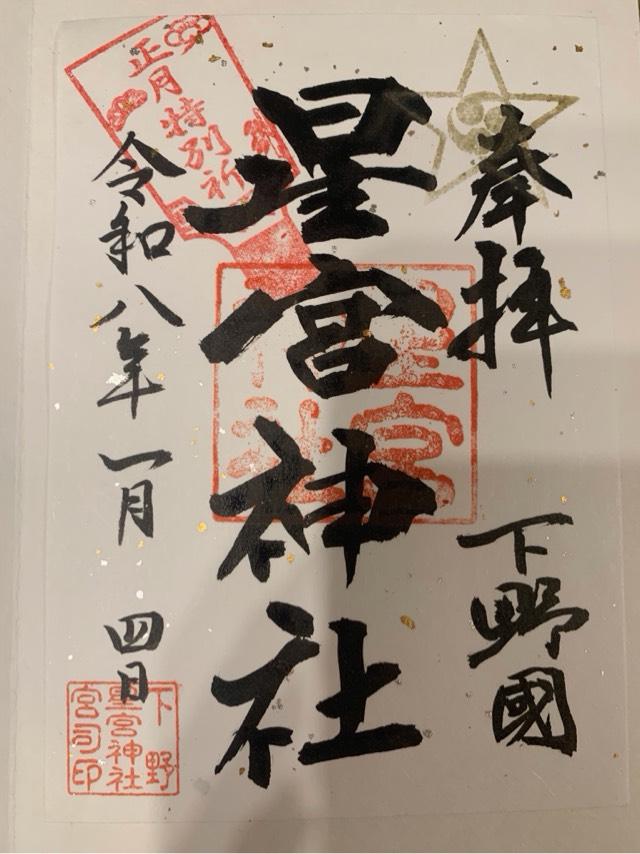 奉拝
下野國
星宮神社
令和八年一月四日
正月特別祈
星宮
下野
星宮神社
宮司印